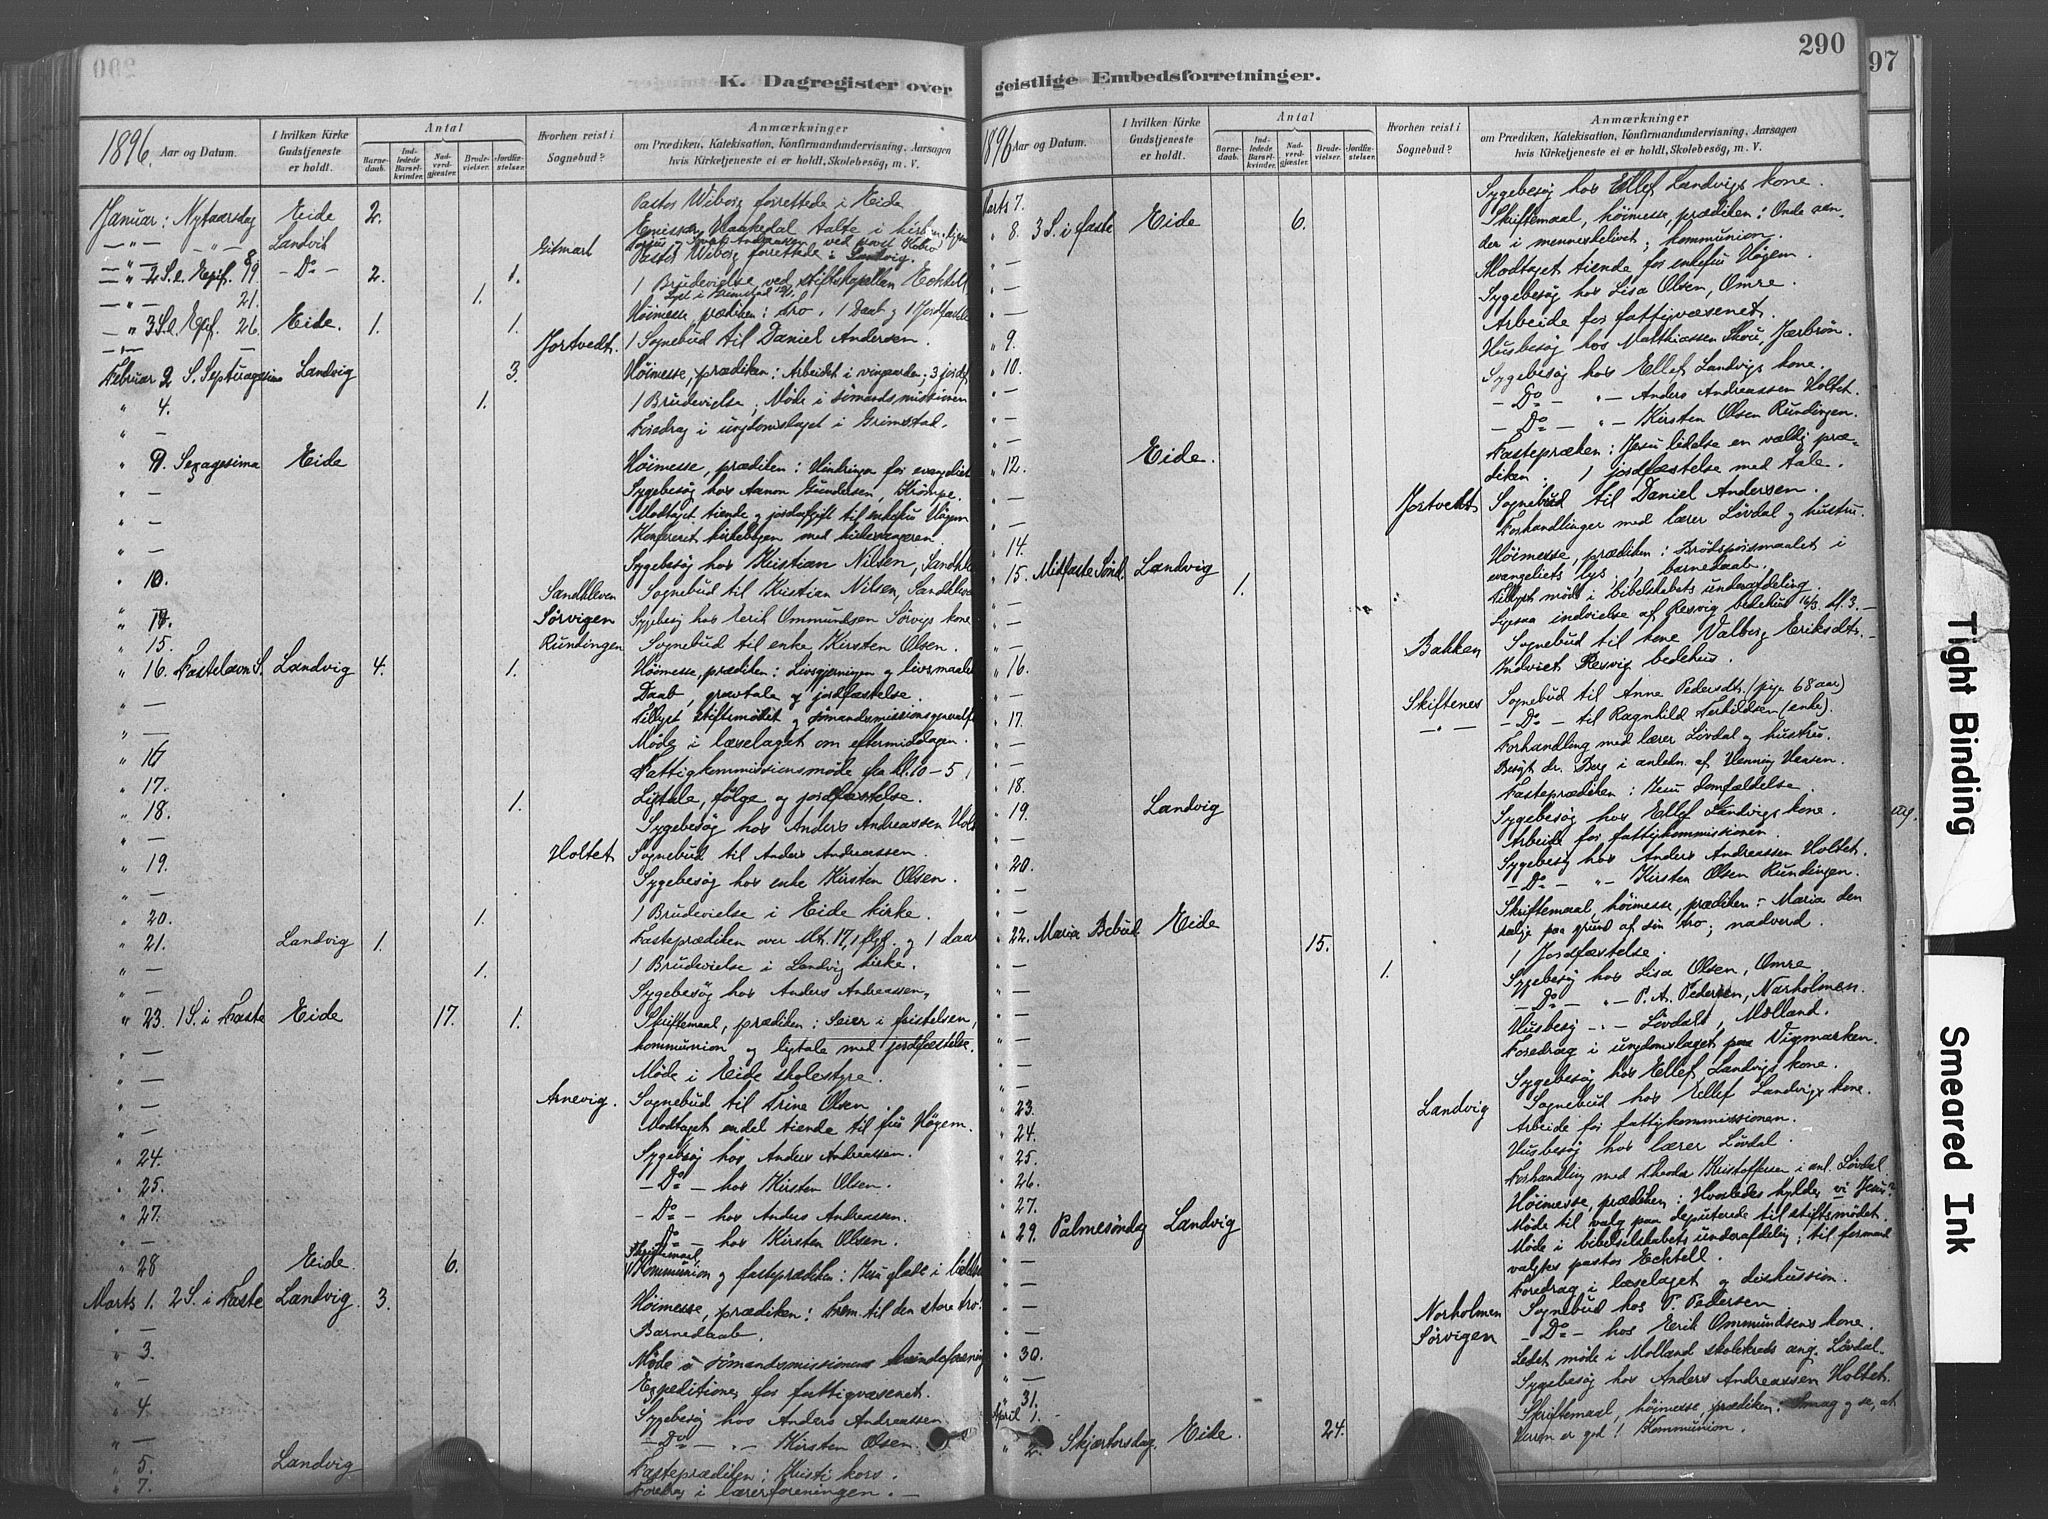 290
97
K. Dagregister over
geistlige Embedsforretninger.
1896. Aar og Datum.
I hvilken Kirke Gudstjeneste er holdt.
Antal
Barnedaab.
Indledede Barselkvinder.
Nadverdgjæster.
Brudevielser.
Jordfæstelser.
Hvorhen reist i Sognebud?
Anmærkninger
om Prædiken, Katekisation, Konfirmandundervisning, Aarsagen
hvis Kirketjeneste ei er holdt, Skolebesög, m. V.
Januar: Nytaarsdag Eide 2. Pastor Wiborg forrettede i Eide
— " — — " — Landvik Gitmark
Pastor Wiborg forrettede i Landvig.
— " 2 S. e. Epif. 19. — Do — 2. 1.
— " — 21. 1. 1 Brudevielse ved stiftskapellan Ecktell
— " 3 S. e. Epif. 26. Eide. 1. 1. Höimesse, prædiken: tro. 1 Daab og 1 Jordfæstelse
— " — Jortvedt. 1 Sognebud til Daniel Andersen.
Februar 2 S. Septuagesima Landvig 3. Höimesse, prædiken: Arbeidet i vingaarden; 3 jordf.
" 4. 1. 1 Brudevielse. Möde i sömandsmissionen
" — Foredrag i ungdomslaget i Grimstad.
" 9. Sexagesima Eide Höimesse, prædiken: Hindringer for evangeliet
" — Sygebesög hos Aanon Gundersen, Krömpe.
" — Modtaget tiende og jordafgift til enkefru Högem
Konfereret kirkebogen med kirkesangeren.
" — Sygebesög hos Kristian Nilsen, Sandkl
" 10. Sandkleven Sognebud til Kristian Nilsen, Sandkleven
" — Sörvigen Sygebesög hos Erik Ommundsen Sörvigs kone
" 15. Rundingen Sognebud til enke Kirsten Olsen.
" 16. Fastelavn S. Landvig 4. 1. Höimesse, prædiken: Livsgjerningen og livsmaalet
" — Daab, gravtale og jordfæstelse.
Tillyst stiftsmödet og sömandsmissionsgeneralf
" — Möde i læselaget om eftermiddagen.
" 16 Fattigkommissionsmöde fra kl. 10 – 5
" 17. 1. Ligtale, fölge og jordfæstelse.
" 18. Sygebesög hos Anders Andreassen Holt
" — Holtet Sognebud til Anders Andreassen.
" 19. Sygebesög hos enke Kirsten Olsen.
" 20. 1. 1 Brudevielse i Eide kirke.
" 21. Landvig 1. Fasteprædiken over Mt. 17,1 flgd. og 1 daab
" — 1. 1 Brudevielse i Landvig kirke.
" — Sygebesög hos Anders Andreassen.
" 23. 1 S. i Faste Eide 17. 1. Skriftemaal, prædiken: Seier i fristelsen,
" — kommunion og ligtale med jordfæstelse.
" — Möde i Eide skolestyre.
" — Arnevig. Sognebud til Trine Olsen
" — Modtaget endel tiende til fru Högem.
" 24. Sygebesög hos Anders Andreassen.
" 25. — Do — hos Kirsten Olsen.
" 27. — Do — hos Anders Andreassen.
" — — Do — hos Kirsten Olsen.
" 28 Eide. 6. Skriftemaal
Kommunion og fasteprædiken: Jesu glæde i lidelse
Marts 1. 2 S. i Faste Landvig. 3. Höimesse, prædiken: Frem til den store tro!
" — Barnedaab.
" 3. Möde i sömandsmissionens kvindeforening
" — Expeditioner for fattigvæsenet.
" 4 Sygebesög hos Anders Andreassen
" — — Do — " — Kirsten Olsen.
" 5. Landvig Fasteprædiken: Kristi kors.
" 7. Foredrag i lærerforeningen. —
1896 Aar og Datum.
I hvilken Kirke Gudstjeneste er holdt.
Antal
Barnedaab.
Indledede Barselkvinder.
Nadverdgjæster.
Brudevielser.
Jordfæstelser.
Hvorhen reist i Sognebud?
Anmærkninger
om Prædiken, Katekisation, Konfirmandundervisning, Aarsagen
hvis Kirketjeneste ei er holdt, Skolebesög, m. V.
Marts 7. Sygebesög hos Ellef Landvigs kone.
" 8. 3 S. i faste Eide 6. Skriftemaal, höimesse, prædiken: Onde aan-
der i menneskelivet; kommunion.
" — Modtaget tiende for enkefru Högem.
" — Sygebesög hos Lisa Olsen, Omre.
" — Arbeide for fattigvæsenet.
" 9. Husbesög hos Matthiassen Skou, Jærbrön.
" 10. Sygebesög hos Ellef Landvigs kone.
" — — Do — " — Anders Andreassen Holtet.
" — — Do — " — Kirsten Olsen Rundingen.
" 12. Eide. Fastepræken: Jesu lidelse en vældig præ-
diken; 1 jordfæstelse med tale.
" — Jortvedt Sognebud til Daniel Andersen.
" 14. Forhandlinger med lærer Lövdal og hustru.
" 15. Midfaste Sönd. Landvig 1. Höimesse, prædiken: Brödspörsmaalet i
evangeliets lys, 1 barnedaab.
" — Tillyst möde i bibelskabets underafdeling.
Ligesaa indvielse af Resvig bedehus 16/3 kl. 3. —
" — Bakken Sognebud til kone Valborg Eriksdtr. —
" 16. Indviet Resvig bedehus.
" — Skiftenes Sognebud til Anne Pedersdtr. (pige 68 aar)
" 17. — " — — Do — til Ragnhild Terkildsen (enke).
" — Forhandling med lærer Lövdal og hustru.
Besögt dr. Berg i anledn. af Henning Hensen.
" 18. Fasteprædiken: Jesu domfældelse.
" 19. Landvig Sygebesög hos Ellef Landvigs kone.
" — Arbeide for fattigkommissionen.
" 20. Sygebesög hos Anders Andreassen Holtet.
" — — Do — " — Kirsten Olsen Rundingen.
" 22. Maria Bebud. Eide 15. Skriftemaal, höimesse, prædiken: Maria den
salige paa grund af sin tro; nadverd.
" — 1. 1 Jordfæstelse.
" — Sygebesög hos Lisa Olsen, Omre
" — — Do — " — P. A. Pedersen, Narholmen.
" — Husbesög — " — Lövdals, Molland.
" — Foredrag i ungdomslaget paa Vigmarken.
" — Sygebesög hos Ellef Landvigs kone.
" 23. Landvig Sognebud hos Ellef Landvigs kone.
" 24. Arbeide for fattigkommissionen.
" 25. Husbesög hos lærer Lövdal.
" 26. Forhandling med Theodor Kristoffersen i anl. Lövdal.
" 27.
" 29. Palmesöndag Landvig Höimesse, prædiken: Hvorledes hylder vi Jesus?
Möde til valg paa deputerede til stiftsmödet.
" — Möde i bibelselskabets underafdeling; til formand
valgtes pastor Ecktell.
" — Foredrag i læselaget og diskussion.
" — Norholmen Sognebud hos P. Pedersen
" — Sörvigen — Do — hos Erik Ommundsens kone.
" 30. Ledet möde i Molland skolekreds ang. Lövdal.
" — Sygebesög hos Anders Andreassen Holtet.
" 31.
April 1.
" 2. Skjærtorsdag. Eide. 24. Skriftemaal, höimesse, prædiken: Smag og se, at
Herren er god! Kommunion.
Tight Binding
Smeared Ink